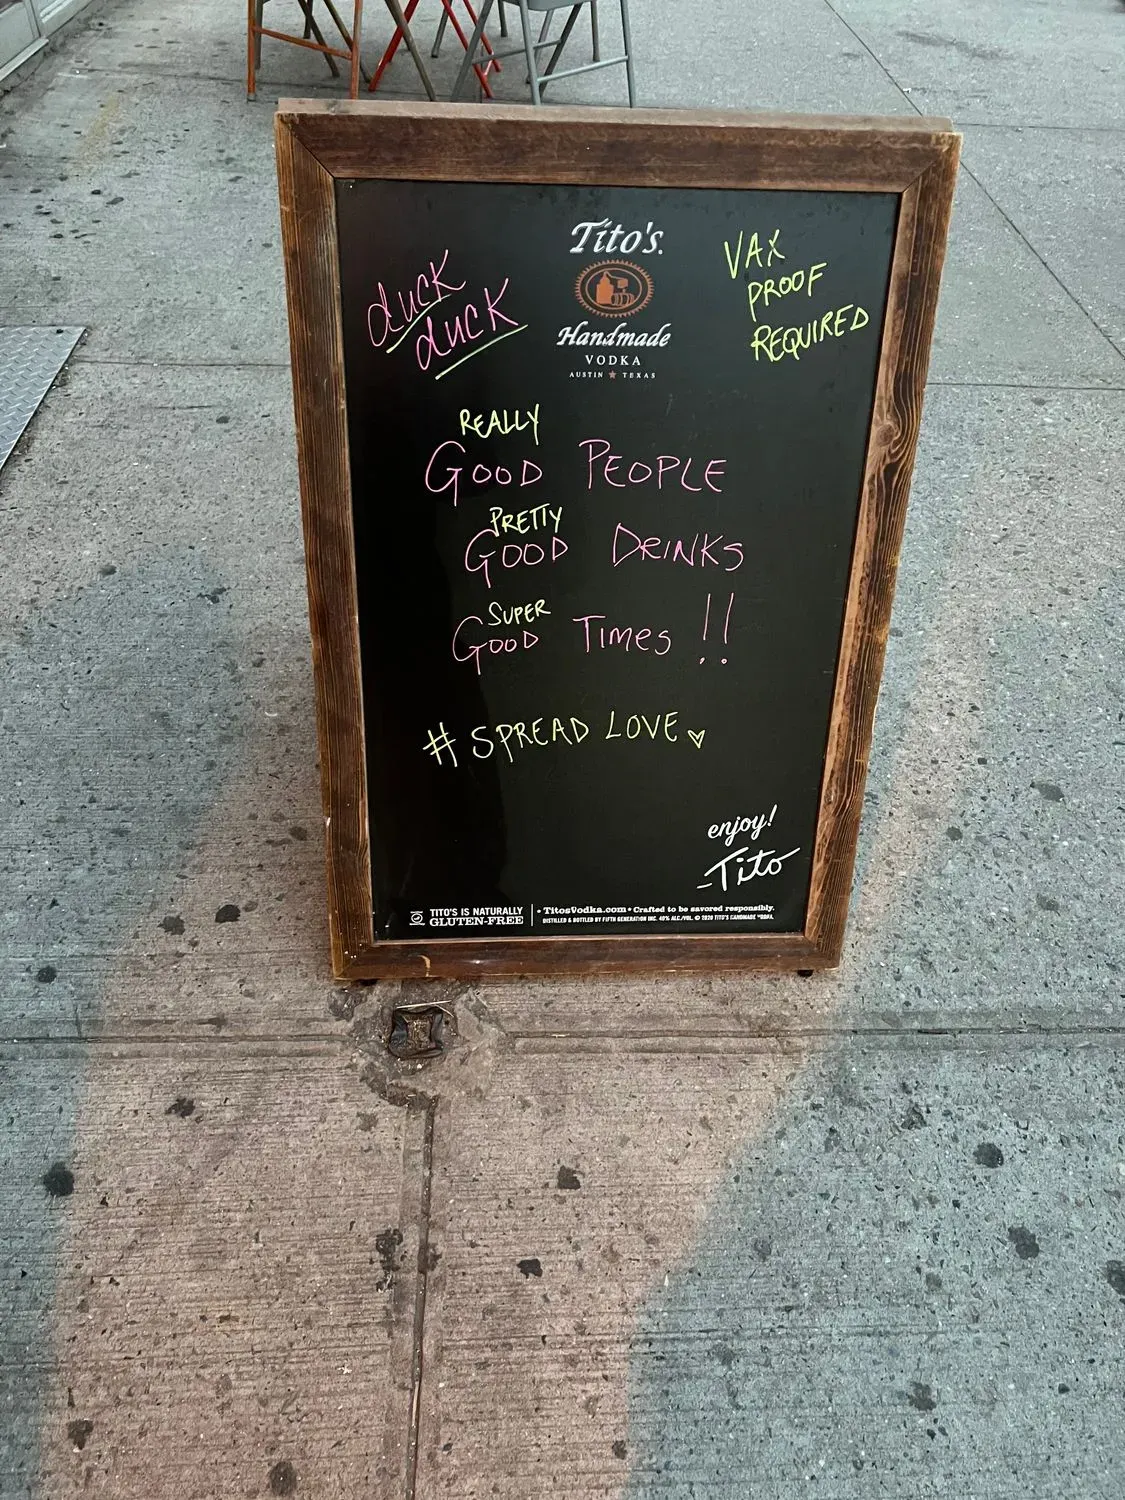 Tito's
Handmade
VODKA
AUSTIN ★ TEXAS
duck
duck
VAX
PROOF
REQUIRED
REALLY
GOOD PEOPLE
PRETTY
GOOD DRINKS
SUPER
GOOD TIMES !!
# SPREAD LOVE ♡
enjoy!
-Tito
TITO'S IS NATURALLY
GLUTEN-FREE
• TitosVodka.com • Crafted to be savored responsibly.
DISTILLED & BOTTLED BY FIFTH GENERATION INC. 40% ALC./VOL. © 2020 TITO'S HANDMADE VODKA.